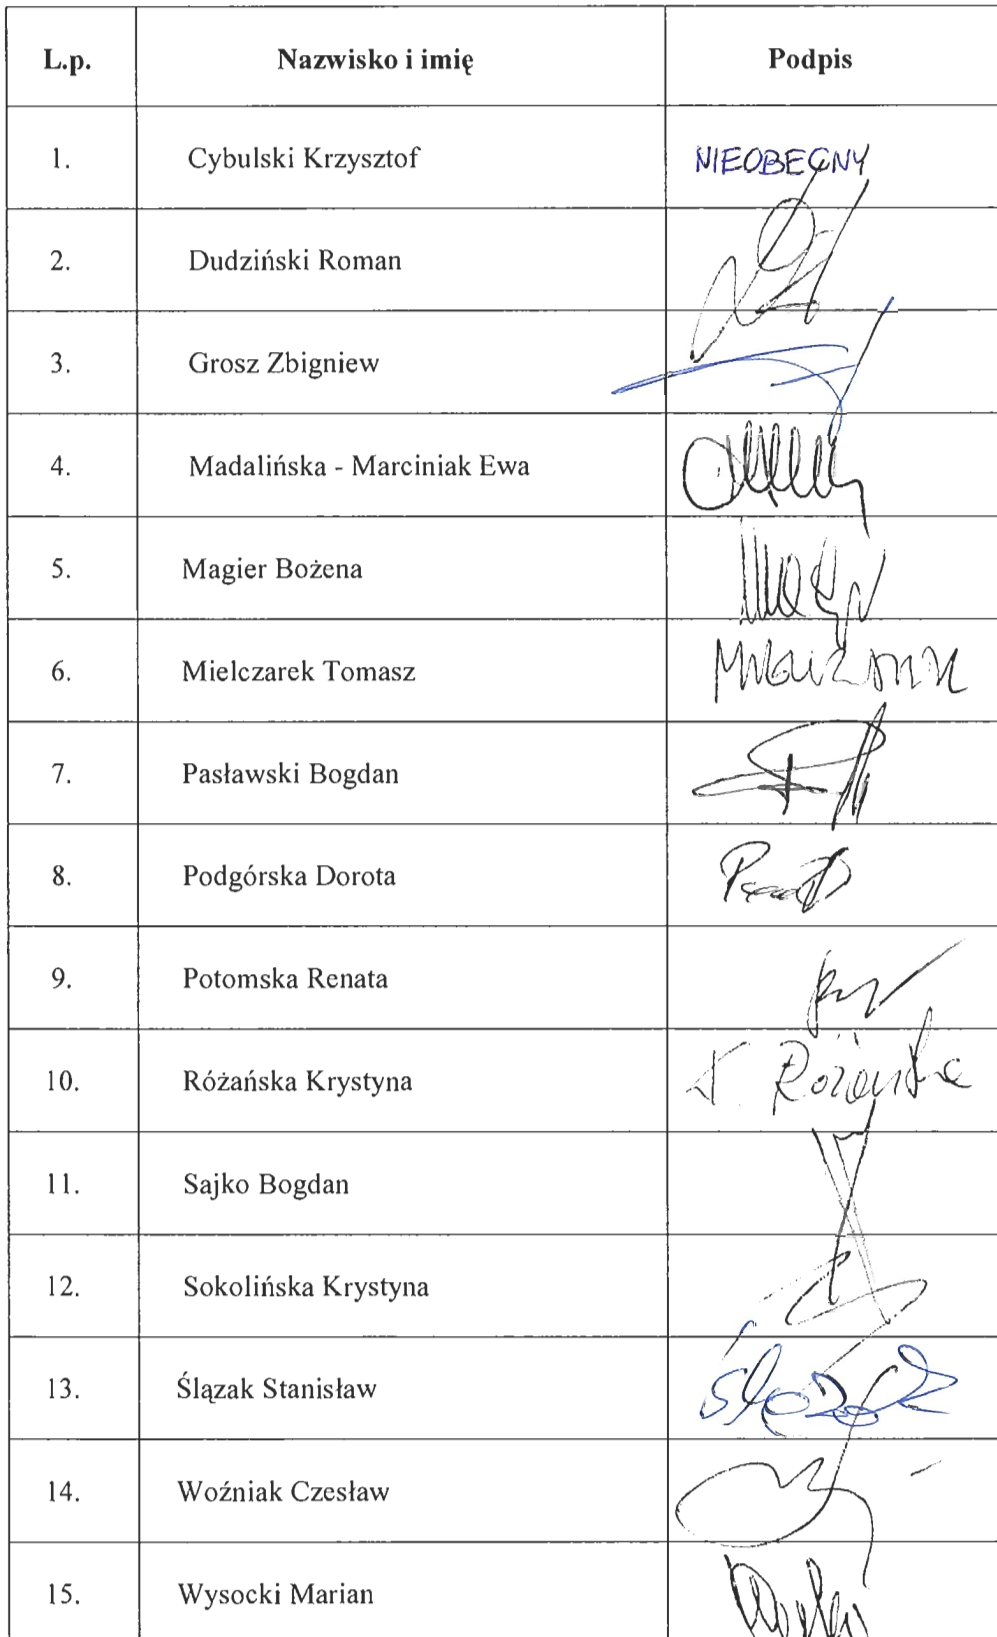 L.p. Nazwisko i imię Podpis
1. Cybulski Krzysztof NIEOBECNY
2. Dudziński Roman
3. Grosz Zbigniew
4. Madalińska - Marciniak Ewa
5. Magier Bożena
6. Mielczarek Tomasz
7. Pasławski Bogdan
8. Podgórska Dorota
9. Potomska Renata
10. Różańska Krystyna K. Różańska
11. Sajko Bogdan
12. Sokolińska Krystyna
13. Ślązak Stanisław Ślązak
14. Woźniak Czesław
15. Wysocki Marian